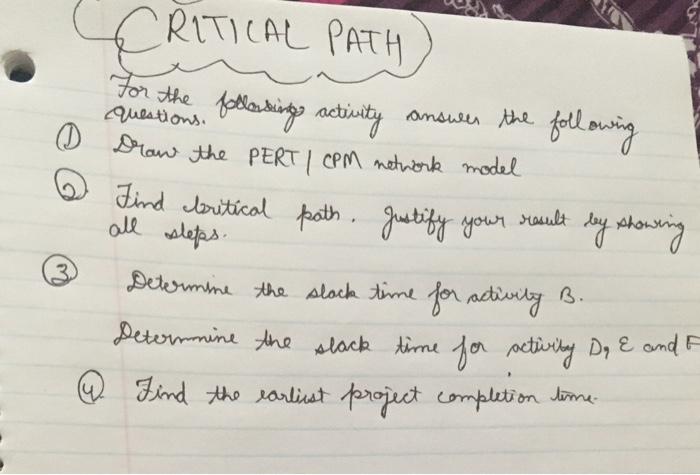 CRITICAL PATH
For the following activity answer the following
questions.
① Draw the PERT / CPM network model
② Find Critical path. Justify your result by showing
all steps.
③ Determine the slack time for activity B.
Determine the slack time for activity D, E and F
④ Find the earliest project completion time.